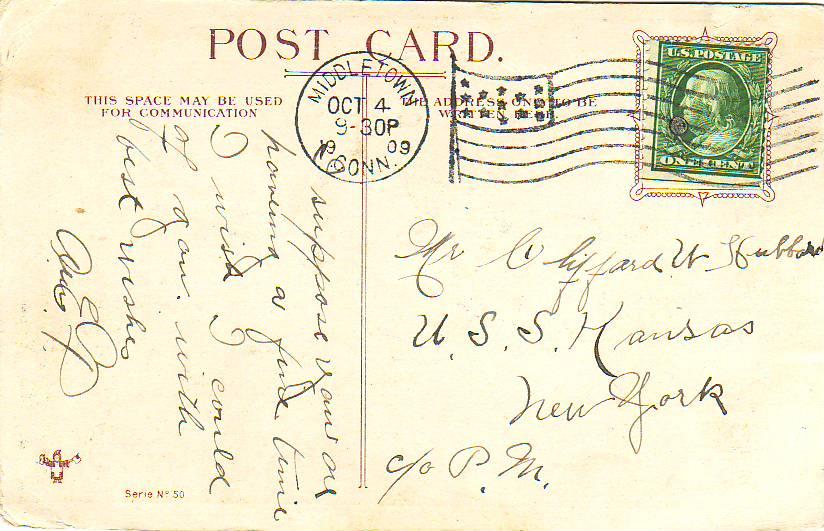 POST CARD.
THIS SPACE MAY BE USED
FOR COMMUNICATION
THE ADDRESS ONLY TO BE
WRITTEN HERE
MIDDLETOWN
OCT 4
9-30P
1909
CONN.
U.S. POSTAGE
ONE CENT
I suppose you are
having a fine time
I wish I could
of gow. with
best wishes
Mr Clifford W Hubbard
U.S.S. Kansas
New York
c/o P.M.
Serie No 50